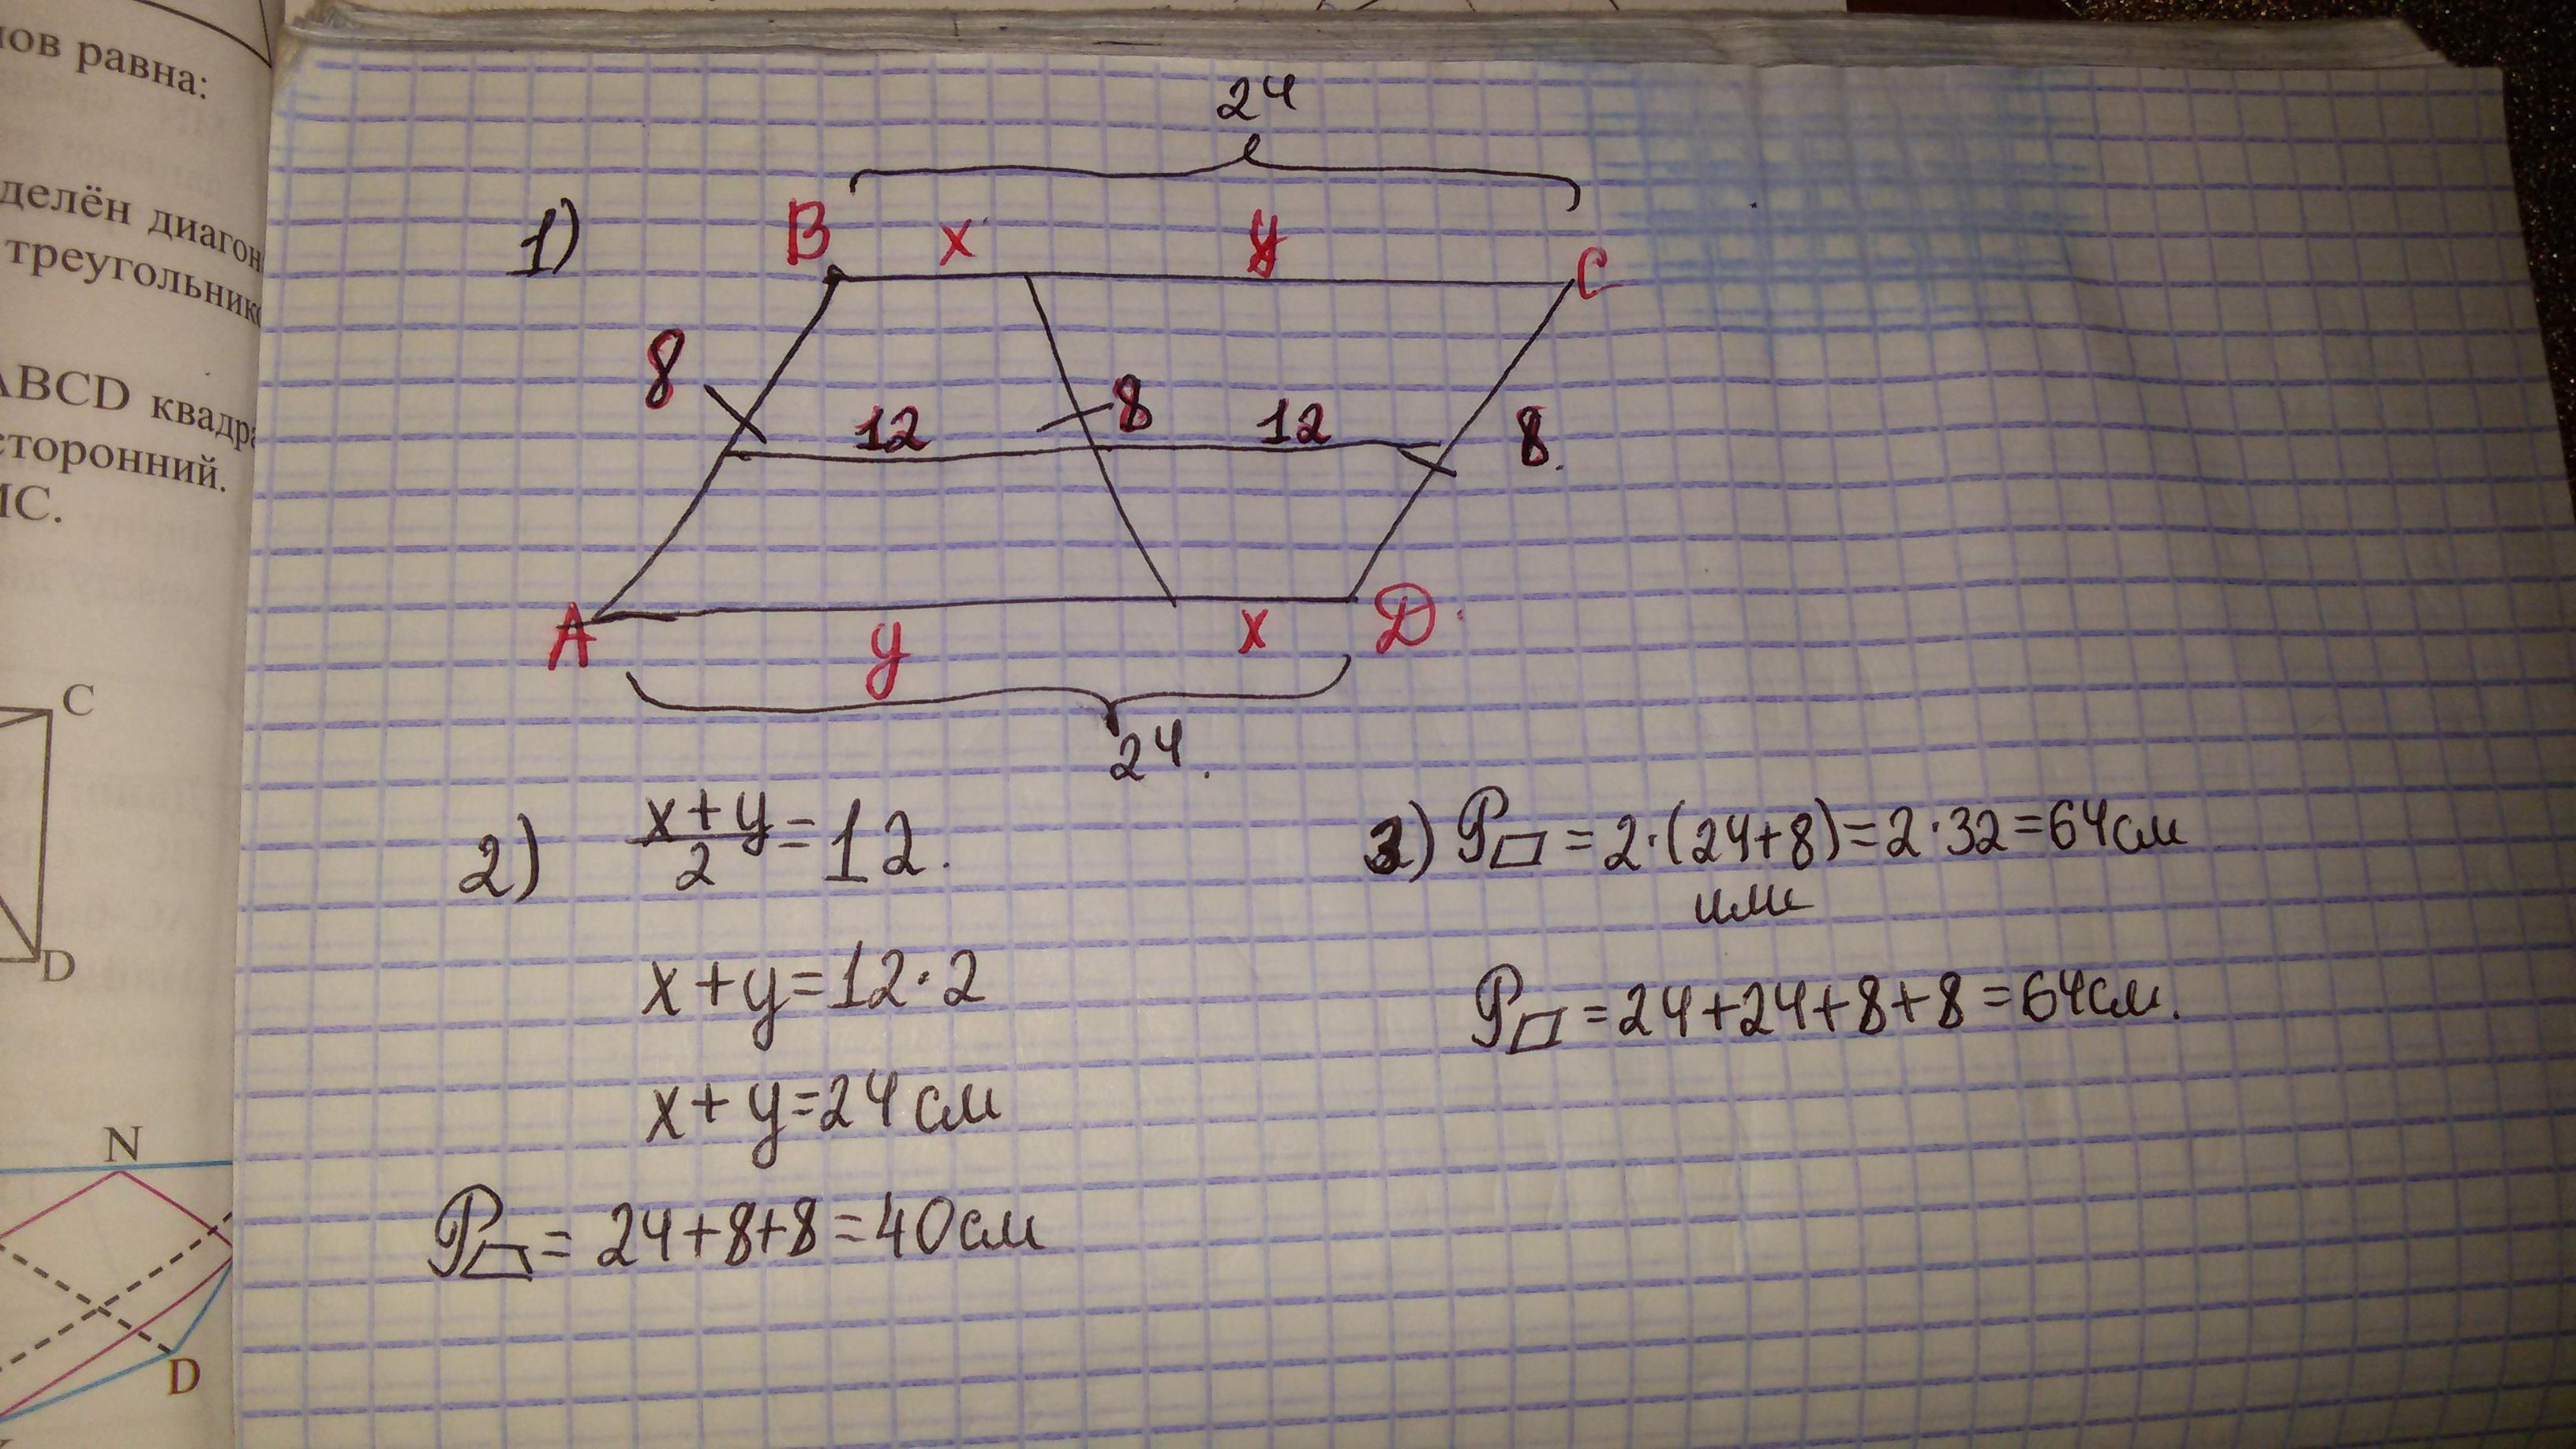 нов равна:
делён диагон
треугольнико
ABCD квадра
сторонний.
МС.
C
D
N
D
24
1)
B x y C
8 12 8 12 8.
A y x D
24.
2) x+y/2=12.
x+y=12·2
x+y=24 см
P▱= 24+8+8=40см
3) P▱=2·(24+8)=2·32=64см
или
P▱=24+24+8+8=64см.